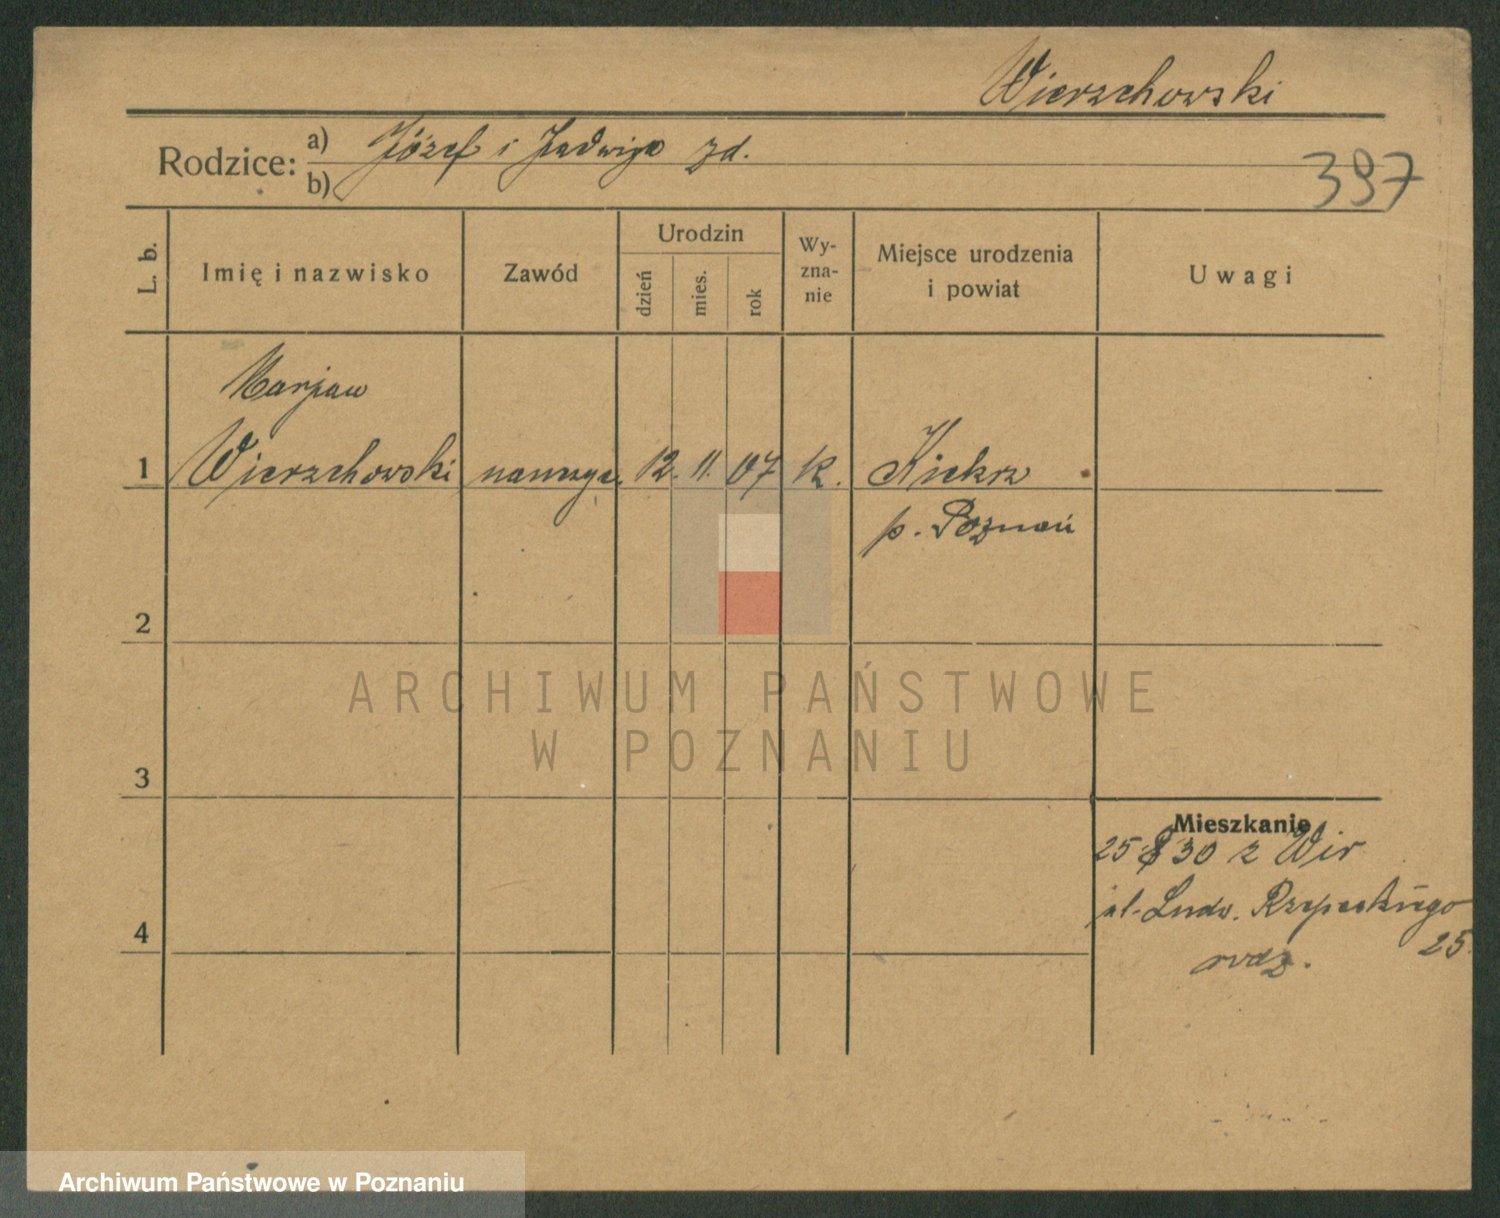 Wierzchowski
Rodzice: a) Józef i Jadwiga zd.
b)
397
L. b.
Imię i nazwisko
Zawód
Urodzin
dzień
mies.
rok
Wy-
zna-
nie
Miejsce urodzenia
i powiat
Uwagi
Marjan
1 Wierzchowski nauczyc. 12. 11. 07 k. Kiekrz
p. Poznań
2
3
4
Mieszkanie
25 8 30 z Wir
ul. Ludw. Rzepeckiego
25
rodz.
ARCHIWUM PAŃSTWOWE
W POZNANIU
Archiwum Państwowe w Poznaniu